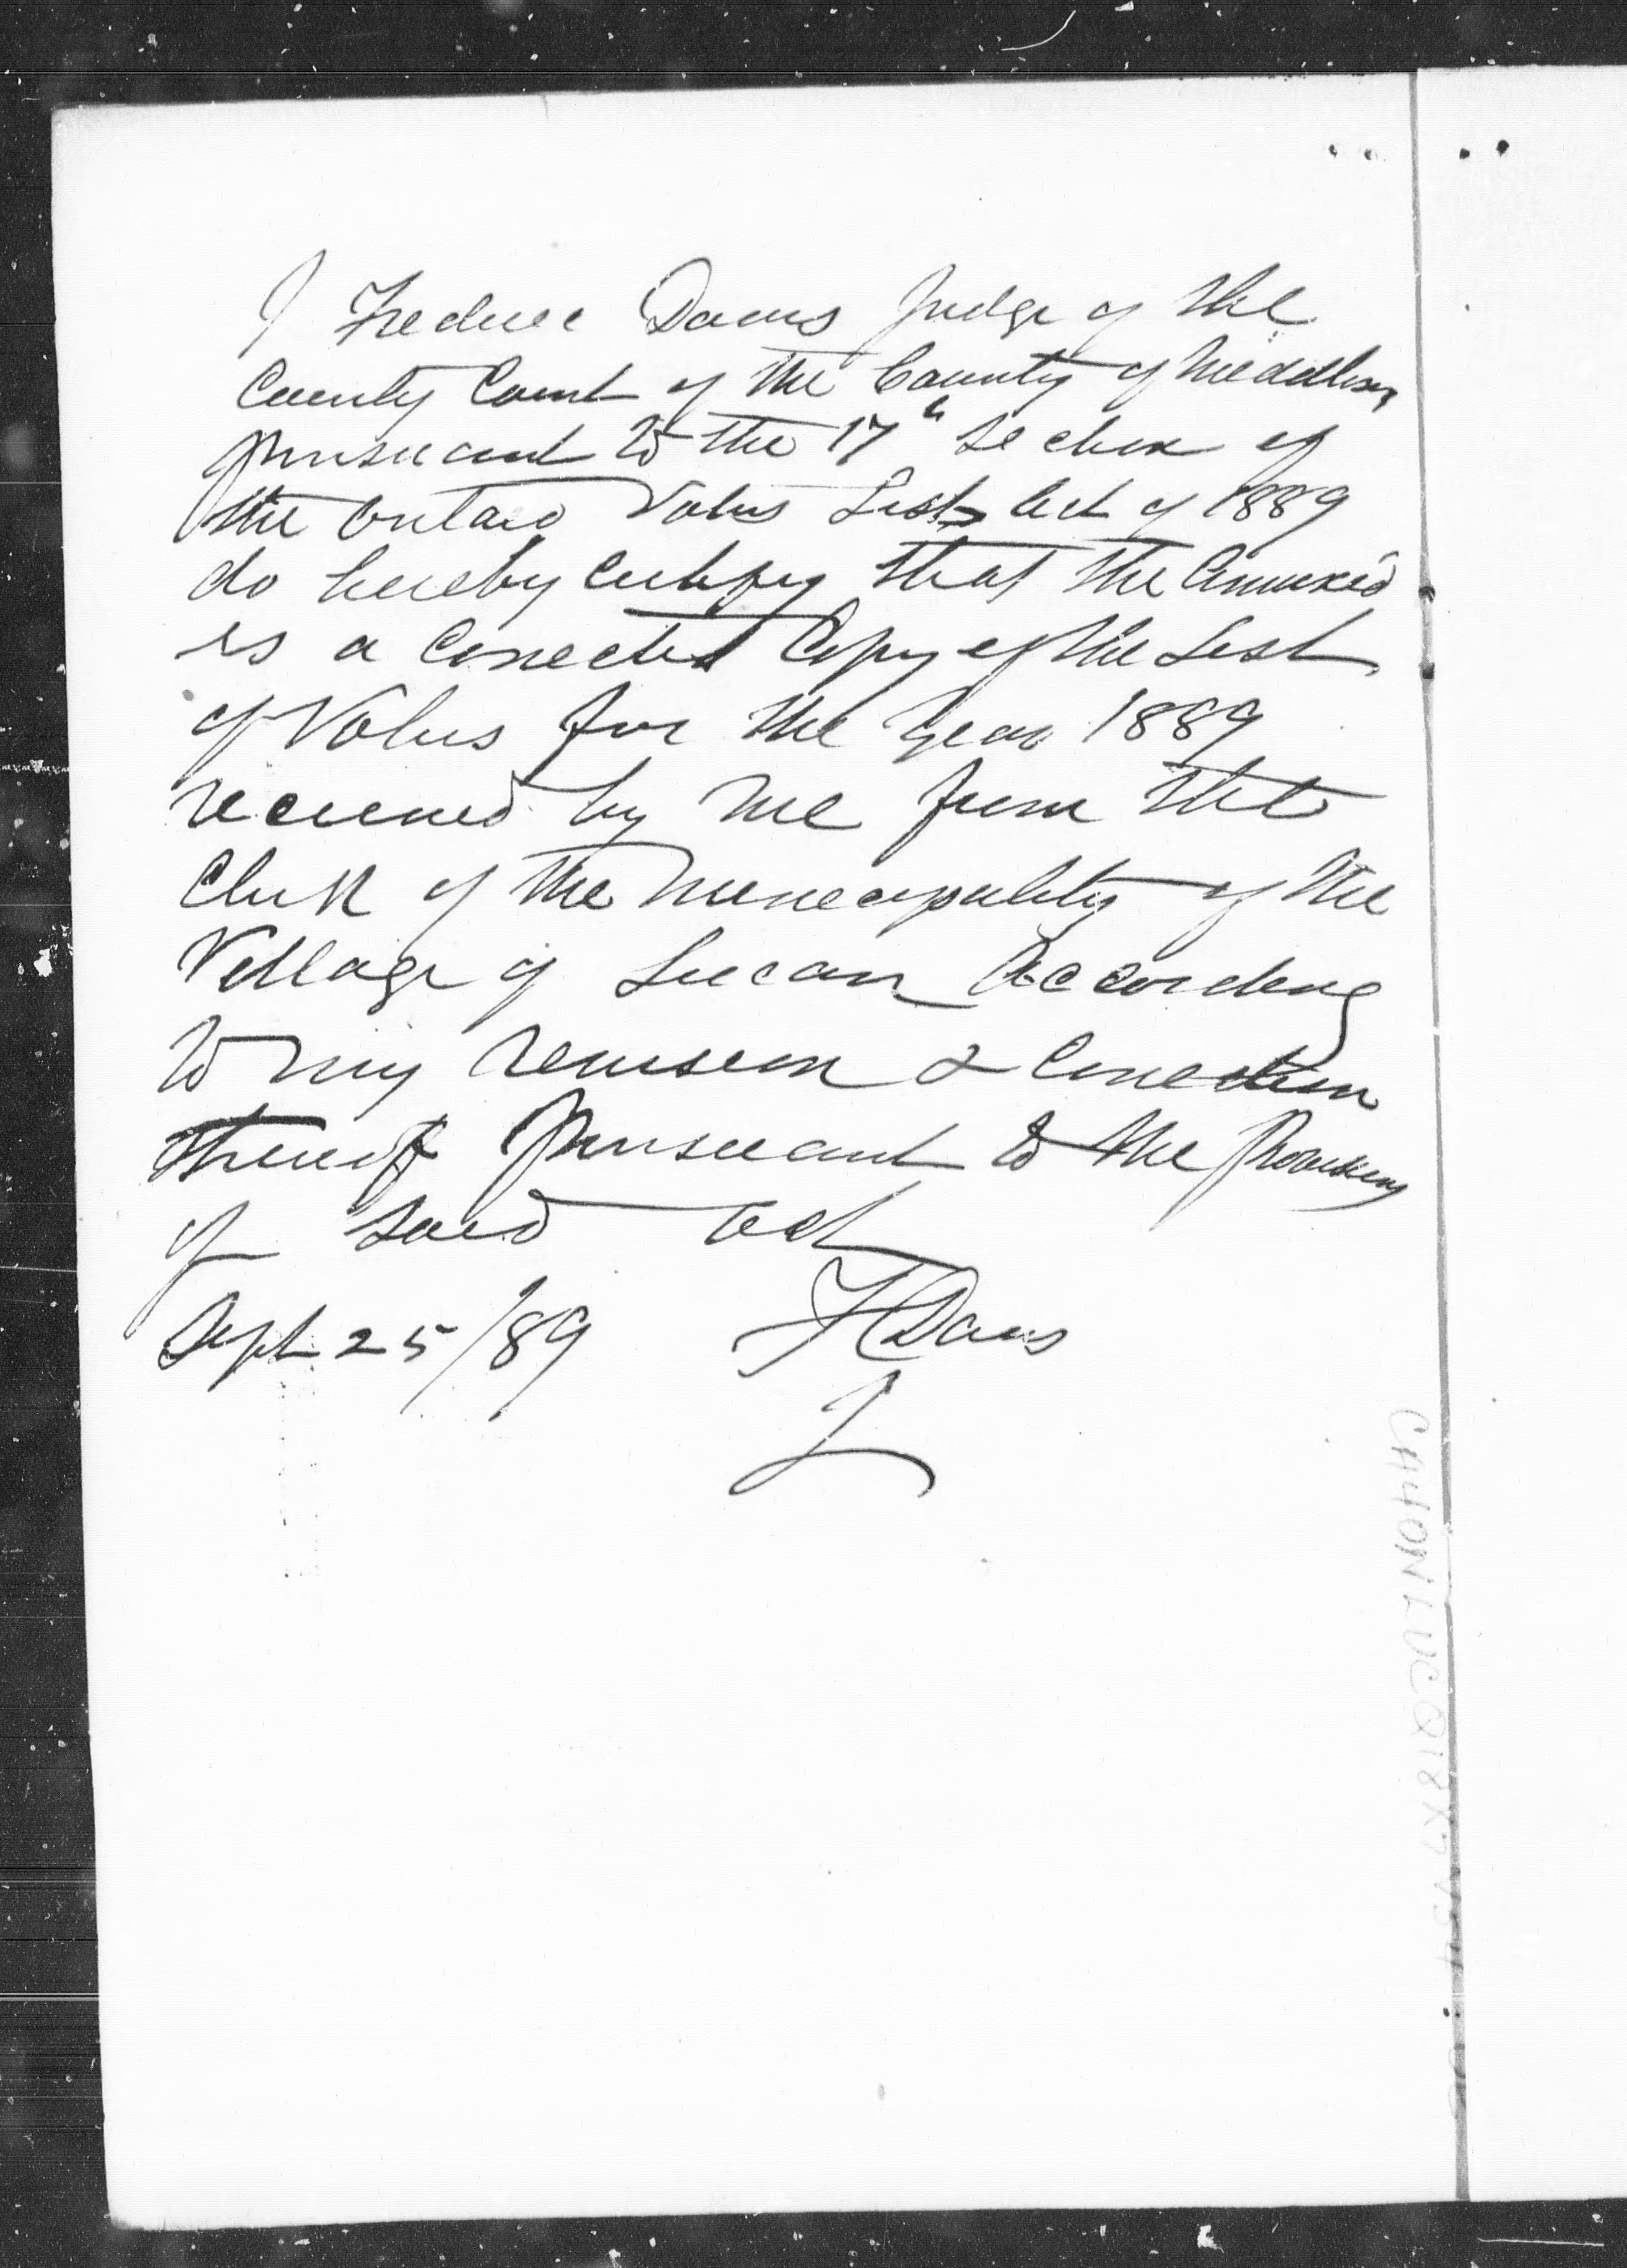 I Frederic Davis Judge of the
County Court of the County of Middlesex
pursuant to the 17th section of
the Ontario Voters Lists Act of 1889
do hereby certify that the annexed
is a corrected Copy of the List
of Voters for the year 1889
received by me from the
Clerk of the Municipality of the
Village of Lucan According
to my revision & Correction
thereof pursuant to the provisions
of said act
Sept 25/89 F Davis
J